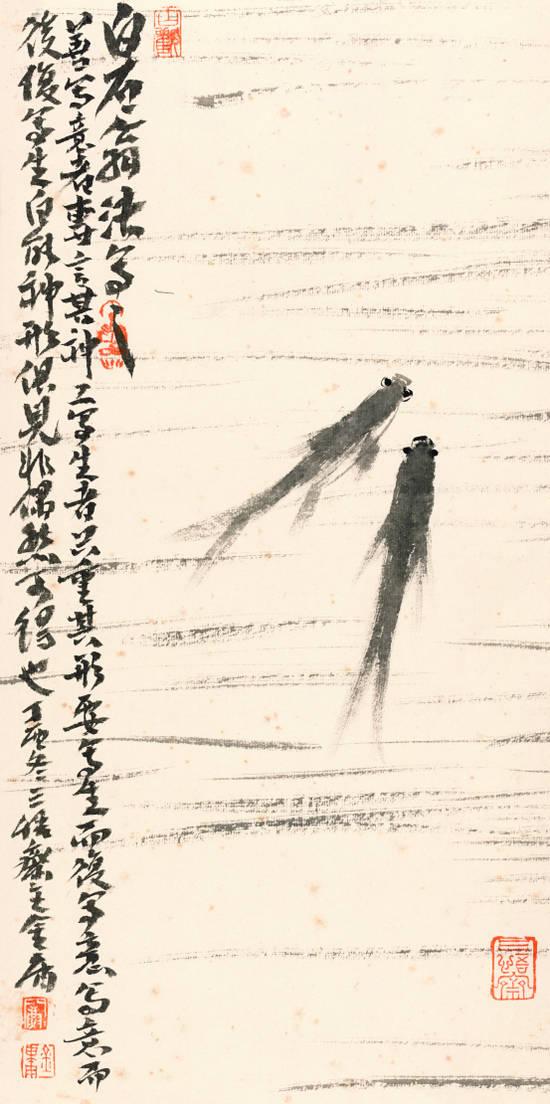 白石翁法写之
善写意者专言其神工写生者只重其形要写生而后写意写意而
后复写生自能神形俱见非偶然可得也丁酉冬三借斋主金甫